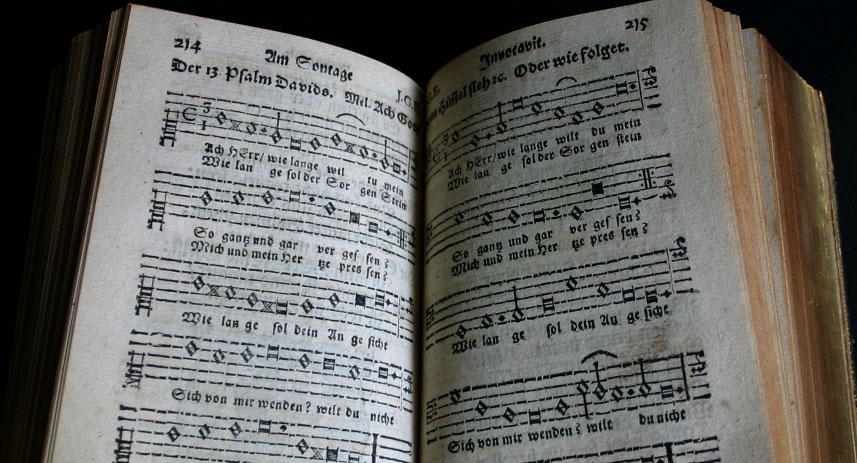 214
Am Sontage
Der 13 Psalm Davids. Mel. Ach Gott
J.G.E.
Ach HErr/ wie lange wil tu mein
Wie lan ge sol der Sor gen Stein
So gantz und gar ver ges sen?
Mich und mein Her tze pres sen?
Wie lan ge sol dein An ge sicht
Sich von mir wenden? wilt du nicht
215
Invocavit.
vom Himel sieh ꝛc. Oder wie folget.
Ach HErr/ wie lange wilt du mein
Wie lan ge sol der Sor gen stein
So gantz und gar ver ges sen?
Mich und mein Her tze pres sen?
Wie lan ge sol dein An ge sicht
Sich von mir wenden? wilt du nicht